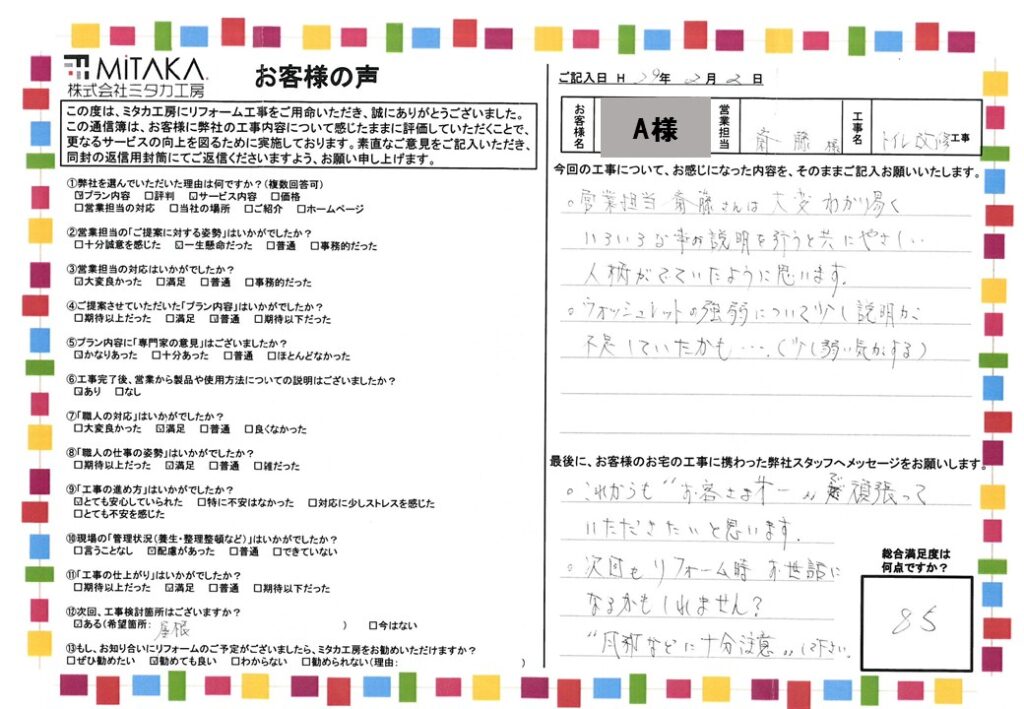 MiTAKA.
株式会社ミタカ工房
お客様の声
この度は、ミタカ工房にリフォーム工事をご用命いただき、誠にありがとうございました。
この通信簿は、お客様に弊社の工事内容について感じたままに評価していただくことで、
更なるサービスの向上を図るために実施しております。素直なご意見をご記入いただき、
同封の返信用封筒にてご返信くださいますよう、お願い申し上げます。
①弊社を選んでいただいた理由は何ですか?(複数回答可)
☑プラン内容 □評判 ☑サービス内容 □価格
□営業担当の対応 □当社の場所 □ご紹介 □ホームページ
②営業担当の「ご提案に対する姿勢」はいかがでしたか?
□十分誠意を感じた ☑一生懸命だった □普通 □事務的だった
③営業担当の対応はいかがでしたか?
☑大変良かった □満足 □普通 □事務的だった
④ご提案させていただいた「プラン内容」はいかがでしたか?
□期待以上だった □満足 ☑普通 □期待以下だった
⑤プラン内容に「専門家の意見」はございましたか?
☑かなりあった □十分あった □普通 □ほとんどなかった
⑥工事完了後、営業から製品や使用方法についての説明はございましたか?
☑あり □なし
⑦「職人の対応」はいかがでしたか?
□大変良かった ☑満足 □普通 □良くなかった
⑧「職人の仕事の姿勢」はいかがでしたか?
□期待以上だった ☑満足 □普通 □雑だった
⑨「工事の進め方」はいかがでしたか?
☑とても安心していられた □特に不安はなかった □対応に少しストレスを感じた
□とても不安を感じた
⑩現場の「管理状況(養生・整理整頓など)」はいかがでしたか?
□言うことなし ☑配慮があった □普通 □できていない
⑪「工事の仕上がり」はいかがでしたか?
□期待以上だった ☑満足 □普通 □期待以下だった
⑫次回、工事検討箇所はございますか?
☑ある(希望箇所: 屋根 ) □今はない
⑬もし、お知り合いにリフォームのご予定がございましたら、ミタカ工房をお勧めいただけますか?
□ぜひ勧めたい ☑勧めても良い □わからない □勧められない(理由: )
ご記入日 H 29年 2月 2日
お客様名 A様 営業担当 斎藤 様 工事名 トイレ改修工事
今回の工事について、お感じになった内容を、そのままご記入お願いいたします。
。営業担当 斎藤さんは 大変 わかり易く
いろいろな事の説明を行うと共にやさしい・・
人柄がでていたように思います。
。ウォッシュレットの強弱について少し説明が
不足していたかも・・・・(少し弱い気がする)
最後に、お客様のお宅の工事に携わった弊社スタッフへメッセージをお願いします。
。これからも "お客さま第一"で頑張って
いただきたいと思います.
。次回も リフォーム時 お世話に
なるかもしれません?
十分注意〟して下さい.
総合満足度は
何点ですか?
85